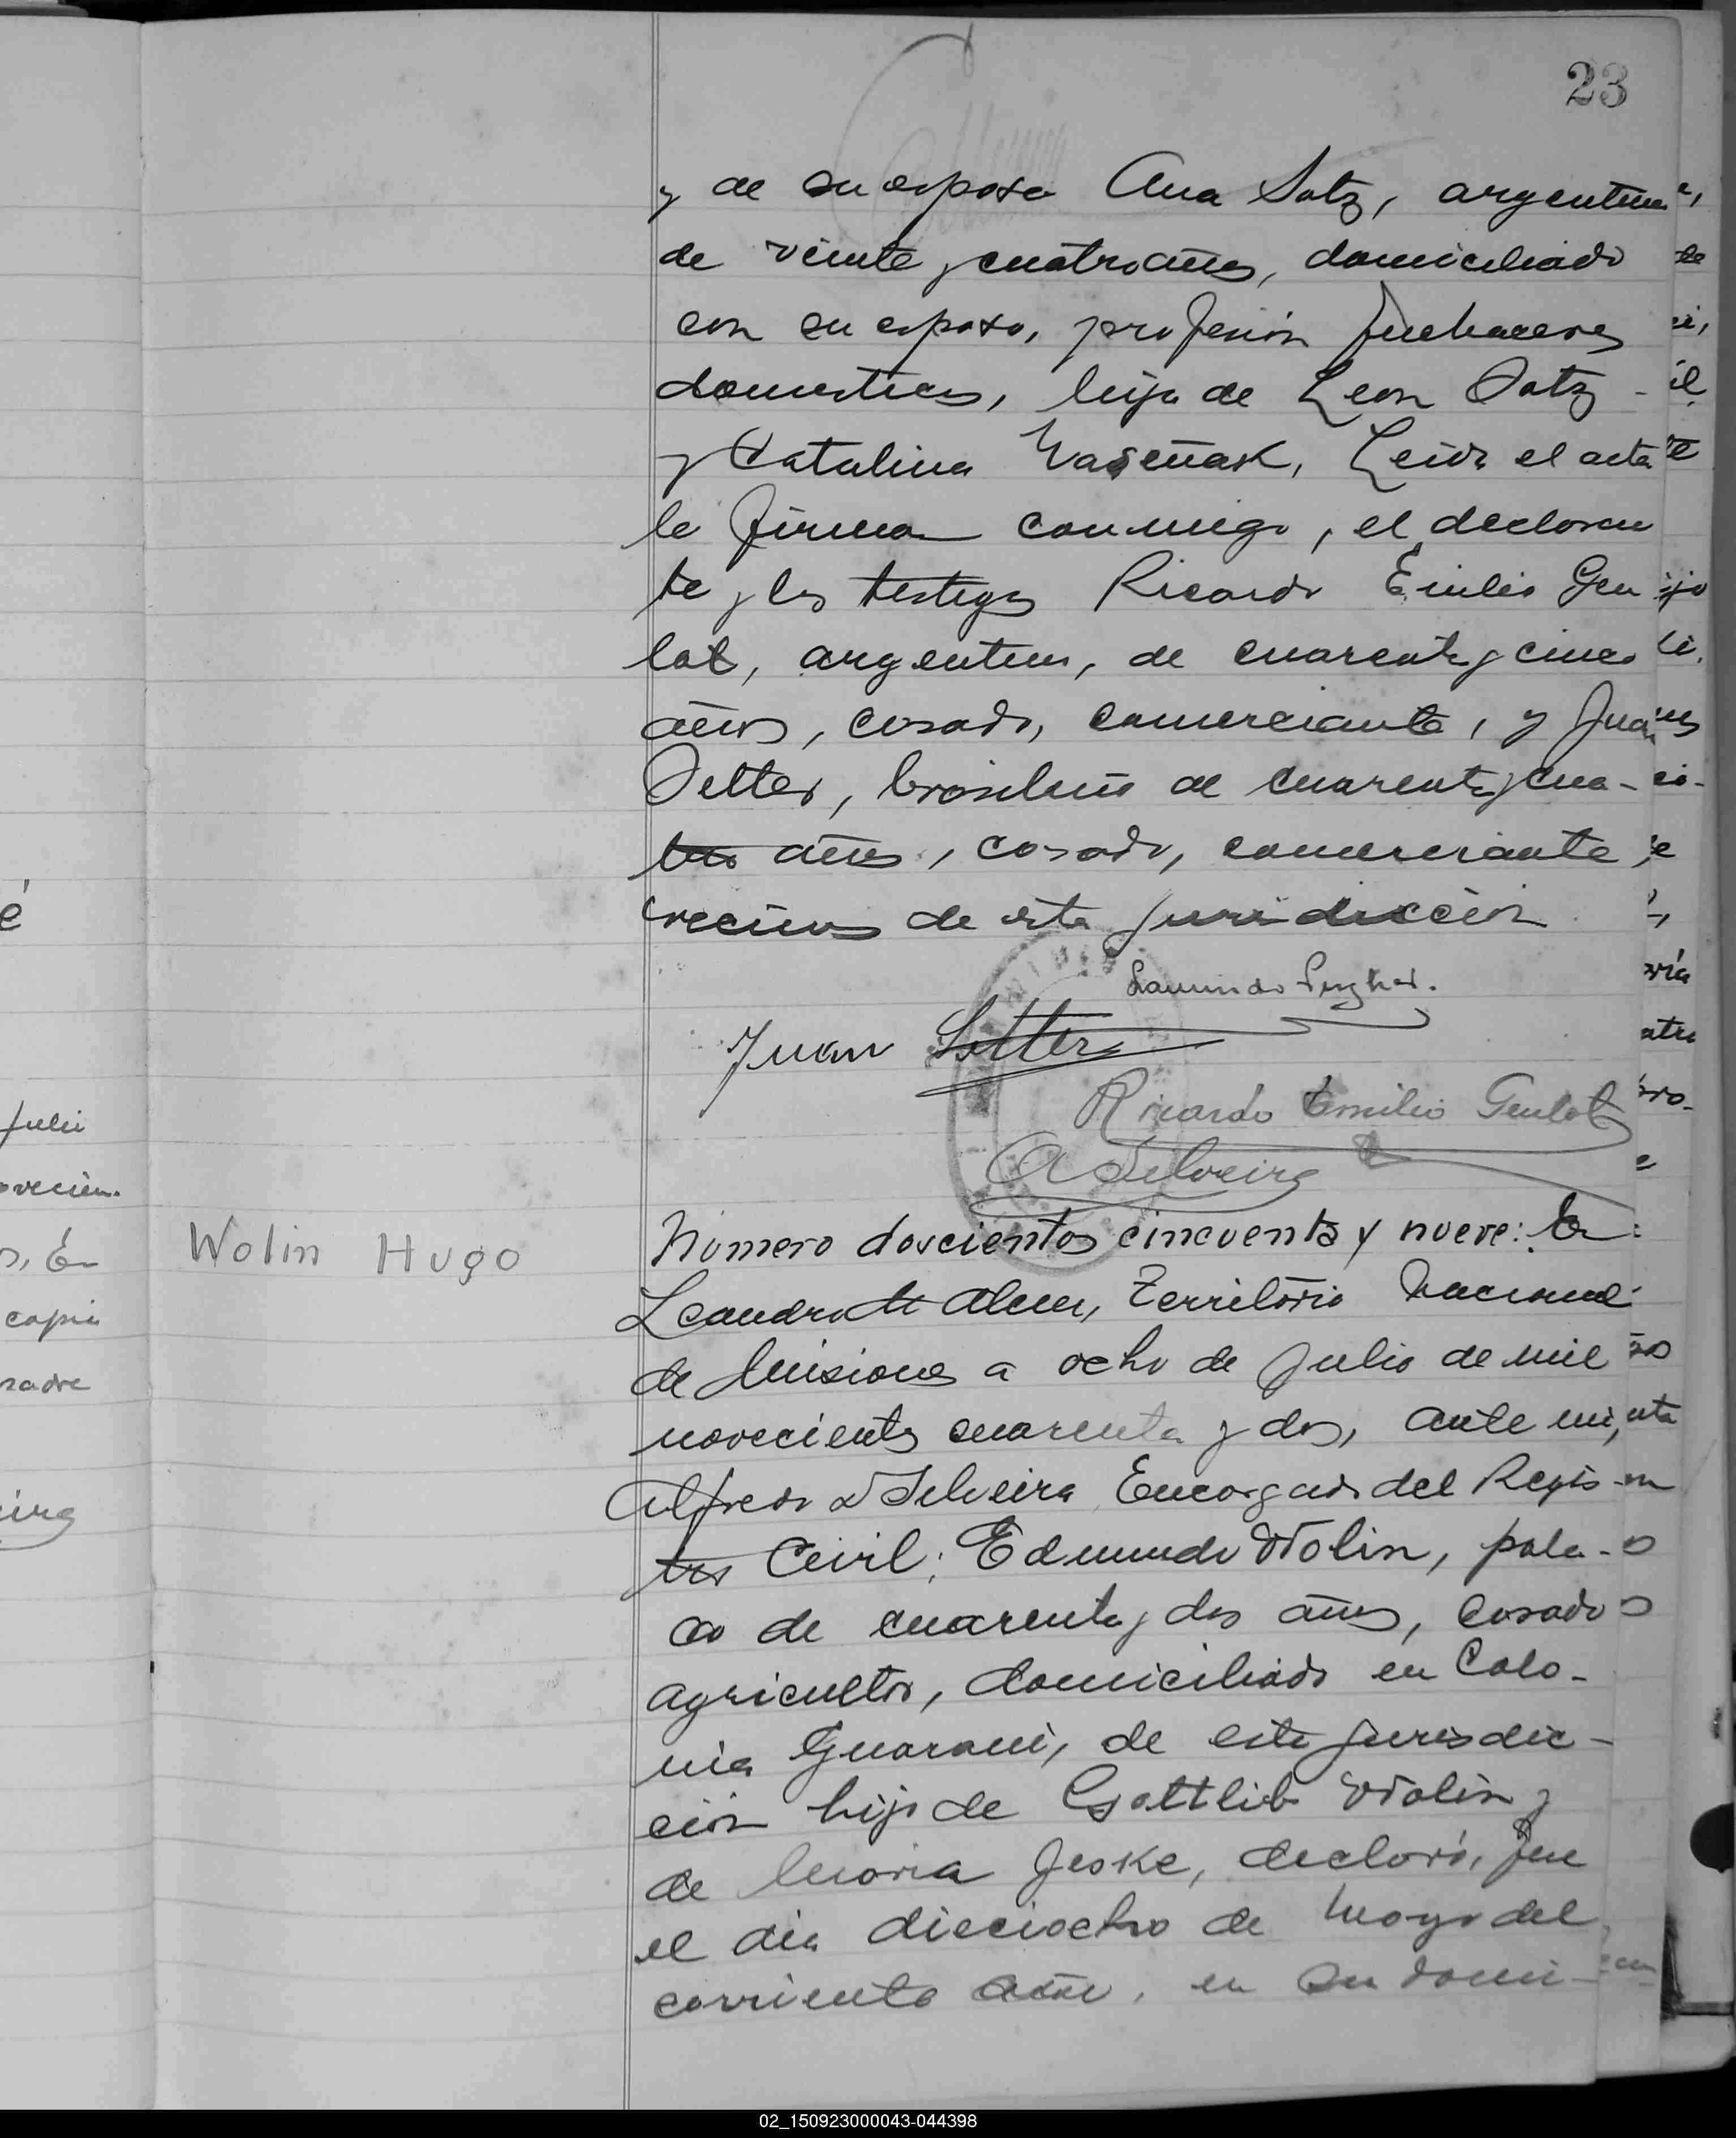 23
y de su esposa Ana Satz, argentina,
de veinte y cuatro años, domiciliado
con su esposo, profesión quehaceres
domesticos, hija de Leon Satz
y Catalina Waseñak, Leida el acta
la firman conmigo, el declaran
te y los testigos Ricardo Emilio Gen
lot, argentino, de cuarenta y cinco
años, casado, comerciante, y Juan
Setter, brasileño de cuarenta y cua-
tro años, casado, comerciante,
vecinos de esta jurisdicción
Juan Setter
Ricardo Emilio Genlot
A Silveira
Wolin Hugo
Número doscientos cincuenta y nueve: En
Leandro N Alem, Territorio Nacional
de Misiones a ocho de Julio de mil
novecientos cuarenta y dos, ante mi,
Alfredo D Silveira Encargado del Regis
tro Civil; Edmundo Wolin, pola-
co de cuarenta y dos años, casado
agricultor, domiciliado en Colo-
nia Guarani, de esta jurisdic-
ción hijo de Gottlib Wolin y
de Maria Jeske, declaró, que
el dia dieciocho de Mayo del
corriente año, en su domi-
02_150923000043-044398